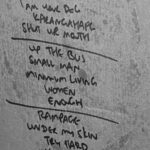 I AM YOUR DOG
KARANGAHAPE
SHUT UR MOUTH
UP THE BUS
SMALL MAN
MINIMUM LIVING
WOMEN
ENOUGH
RAMPAGE
UNDER MY SKIN
TRY HARD